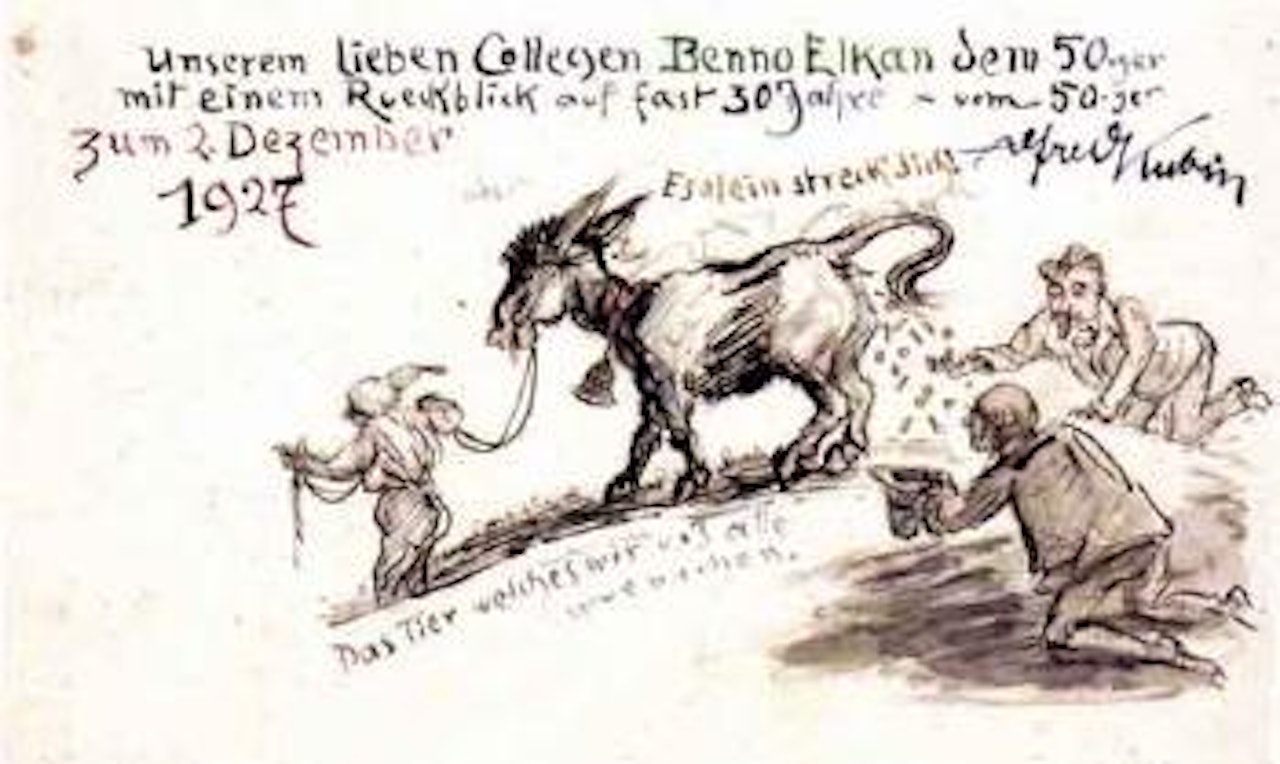 Unserem lieben Collegen Benno Elkan dem 50.ger
mit einem Rueckblick auf fast 30 Jahre - vom 50-ger
zum 2. Dezember
1927
Alfred Kubin
Eselein streck' dich!
Das Tier welches wir uns alle